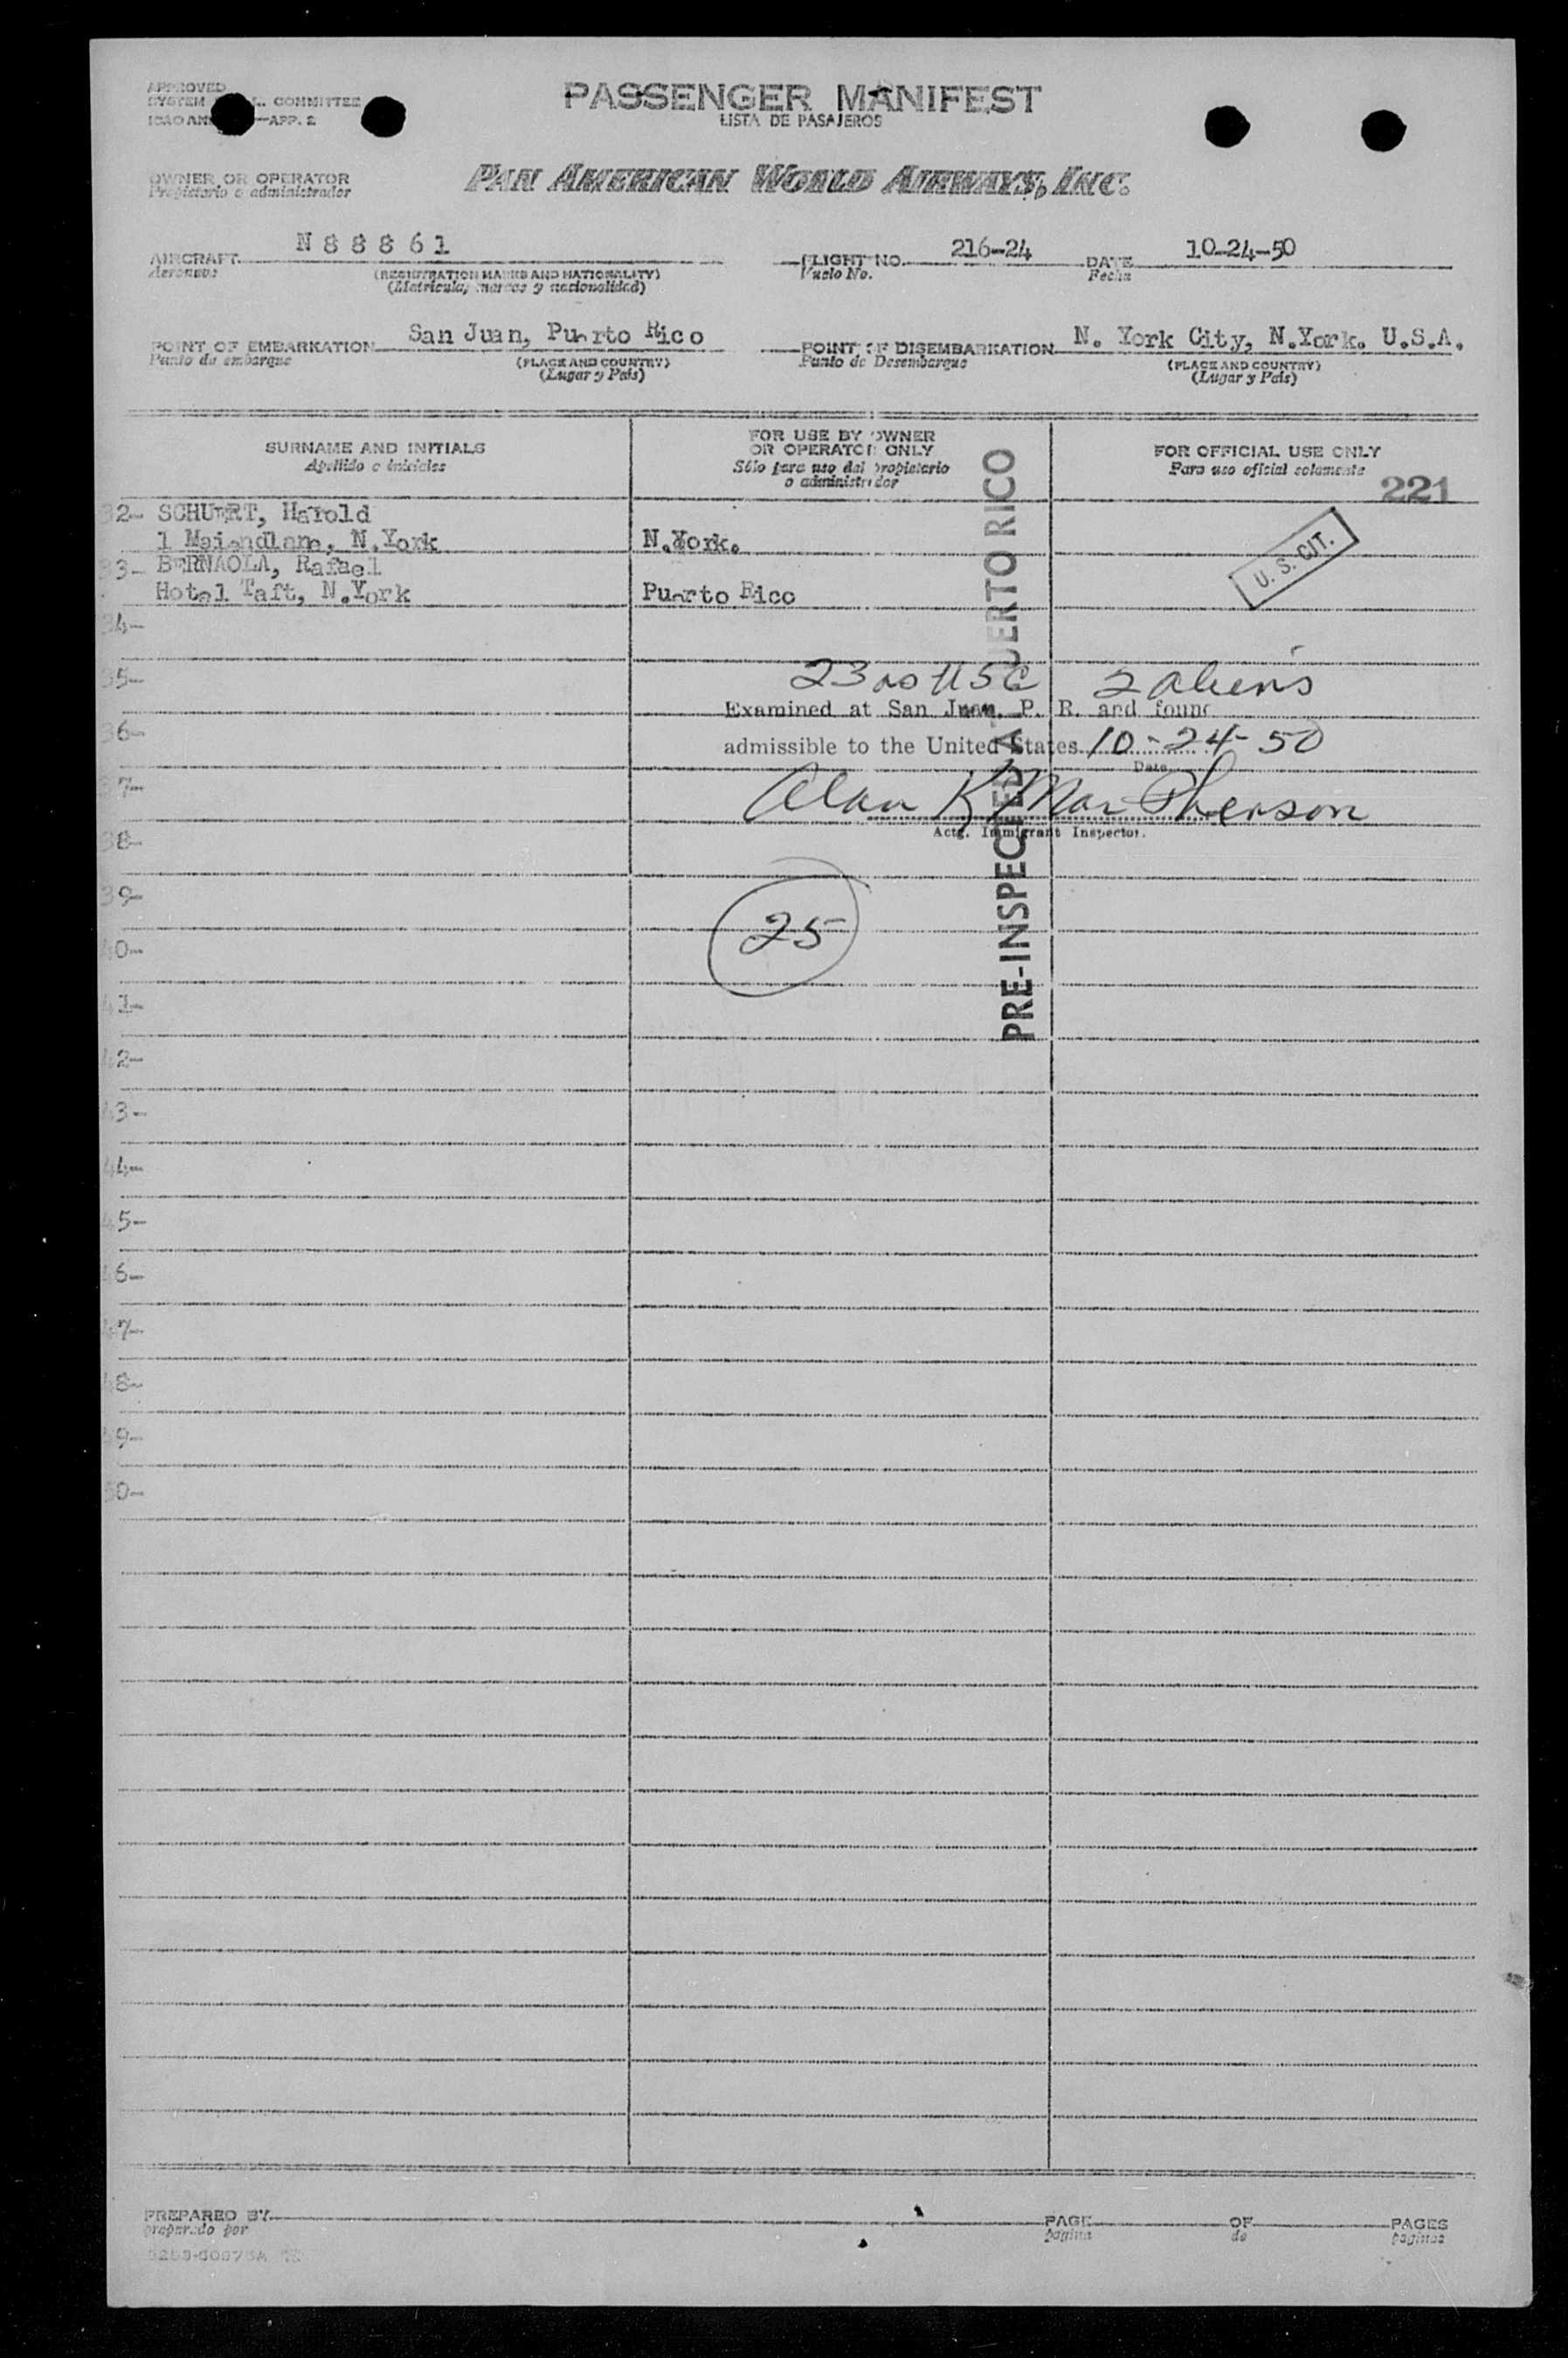 APPROVED
SYSTEM COMMITTEE
ICAO AN —APP. 2
PASSENGER MANIFEST
LISTA DE PASAJEROS
OWNER OR OPERATOR
Propietario o administrador
PAN AMERICAN WORLD AIRWAYS, INC.
AIRCRAFT N 8 8 8 6 1
Aeronave
(REGISTRATION MARKS AND NATIONALITY)
(Matricula, marcas y nacionalidad)
FLIGHT NO. 216-24
Vuelo No.
DATE 10-24-50
Fecha
POINT OF EMBARKATION San Juan, Puerto Rico
Punto de embarque
(PLACE AND COUNTRY)
(Lugar y País)
POINT OF DISEMBARKATION N. York City, N.York. U.S.A.
Punto de Desembarque
(PLACE AND COUNTRY)
(Lugar y País)
SURNAME AND INITIALS
Apellido e iniciales
FOR USE BY OWNER
OR OPERATOR ONLY
Sólo para uso del propietario
o administrador
FOR OFFICIAL USE ONLY
Para uso oficial solamente
221
32- Harold
1 N.York N.York.
33- BERNAOLA, Rafael
Hotel Taft, N.York Puerto Rico
U. S. CIT.
34-
35-
23 USC 2 aliens
Examined at San Juan, P. R. and found
36-
admissible to the United States 10-24-50
Date
37-
Alan K MacPherson
Actg. Immigrant Inspector.
PRE-INSPECTED AT PUERTO RICO
38-
39-
25
40-
41-
42-
43-
44-
45-
46-
47-
48-
49-
50-
PREPARED BY
preparado por
PAGE OF PAGES
página de páginas